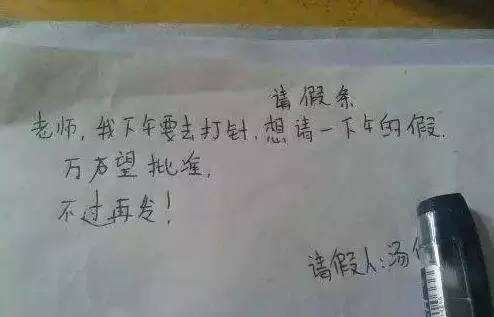 请假条
老师,我下午要去打针,想请一下午的假.
万希望批准,
不过再发!
请假人:汤